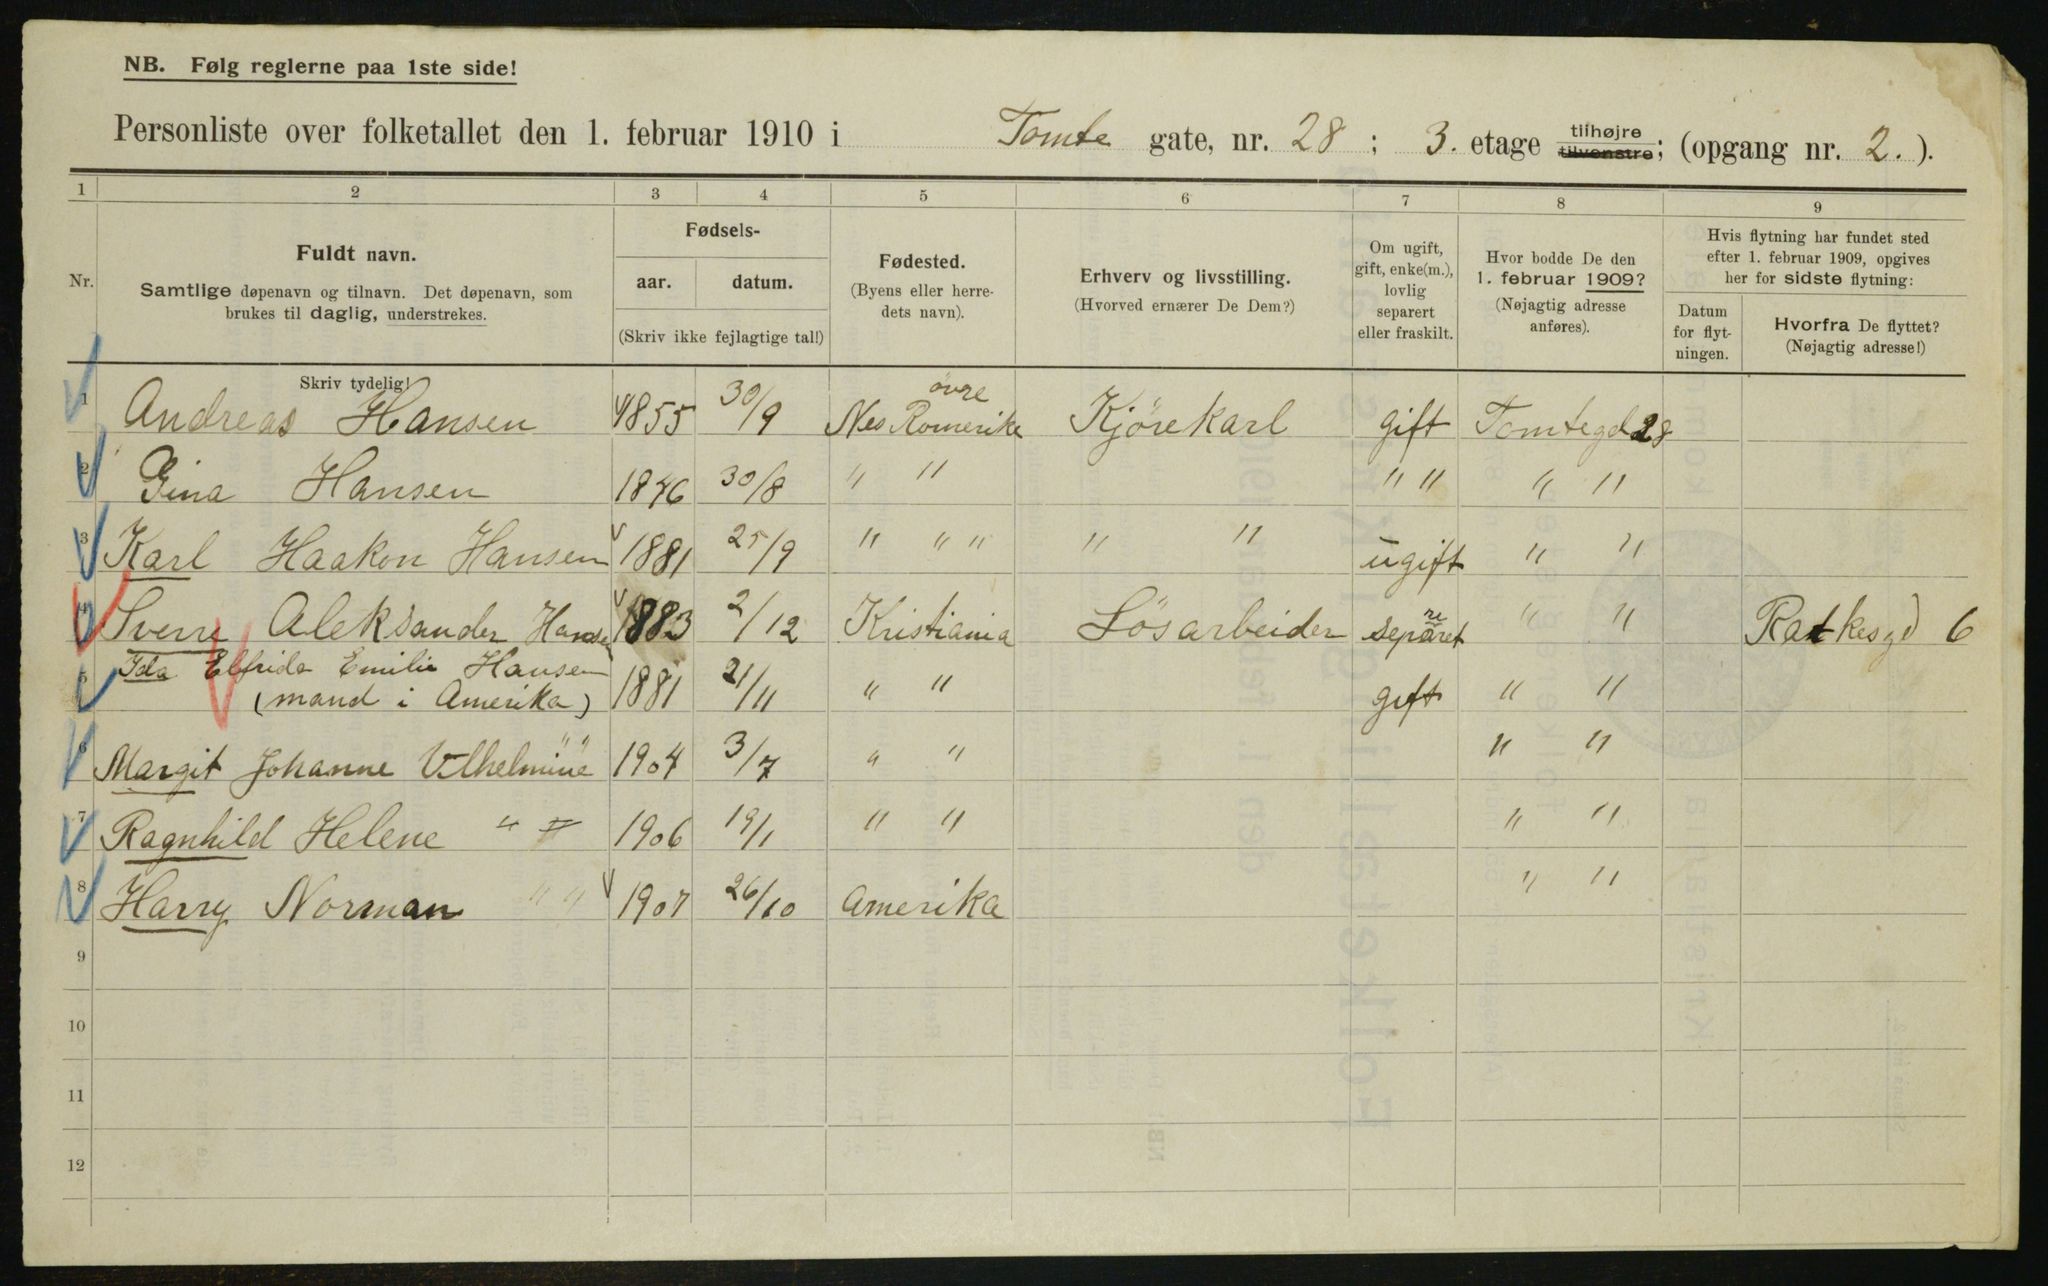 NB. Følg reglerne paa 1ste side!
Personliste over folketallet den 1. februar 1910 i Tomte gate, nr. 28 ; 3. etage tilhøjre tilvenstre; (opgang nr. 2. ).
1 2 3 4 5 6 7 8 9
Nr.
Fuldt navn.
Samtlige døpenavn og tilnavn. Det døpenavn, som
brukes til daglig, understrekes.
Skriv tydelig!
Fødsels-
aar. datum.
(Skriv ikke fejlagtige tal!)
Fødested.
(Byens eller herre-
dets navn).
Erhverv og livsstilling.
(Hvorved ernærer De Dem?)
Om ugift,
gift, enke(m.),
lovlig
separert
eller fraskilt.
Hvor bodde De den
1. februar 1909?
(Nøjagtig adresse
anføres).
Hvis flytning har fundet sted
efter 1. februar 1909, opgives
her for sidste flytning:
Datum
for flyt-
ningen.
Hvorfra De flyttet?
(Nøjagtig adresse!)
1 Andreas Hansen 1855 30/9 Nes øvre Romerike Kjørekarl gift Tomtegd 28
2 Gina Hansen 1846 30/8 " " " " " "
3 Karl Haakon Hansen 1881 25/9 " " " " " ugift " "
4 Sverre Aleksander Hansen 1883 2/12 Kristiania Løsarbeider separeret " " Ratkesgd 6
5 Ida Elfrida Emilie Hansen
(mand i Amerika) 1881 21/11 " " gift " "
6 Margit Johanne Vilhelmine " " 1904 3/7 " " " "
7 Ragnhild Helene " " 1906 19/1 " " " "
8 Harry Norman " " 1907 26/10 Amerika " "
9
10
11
12